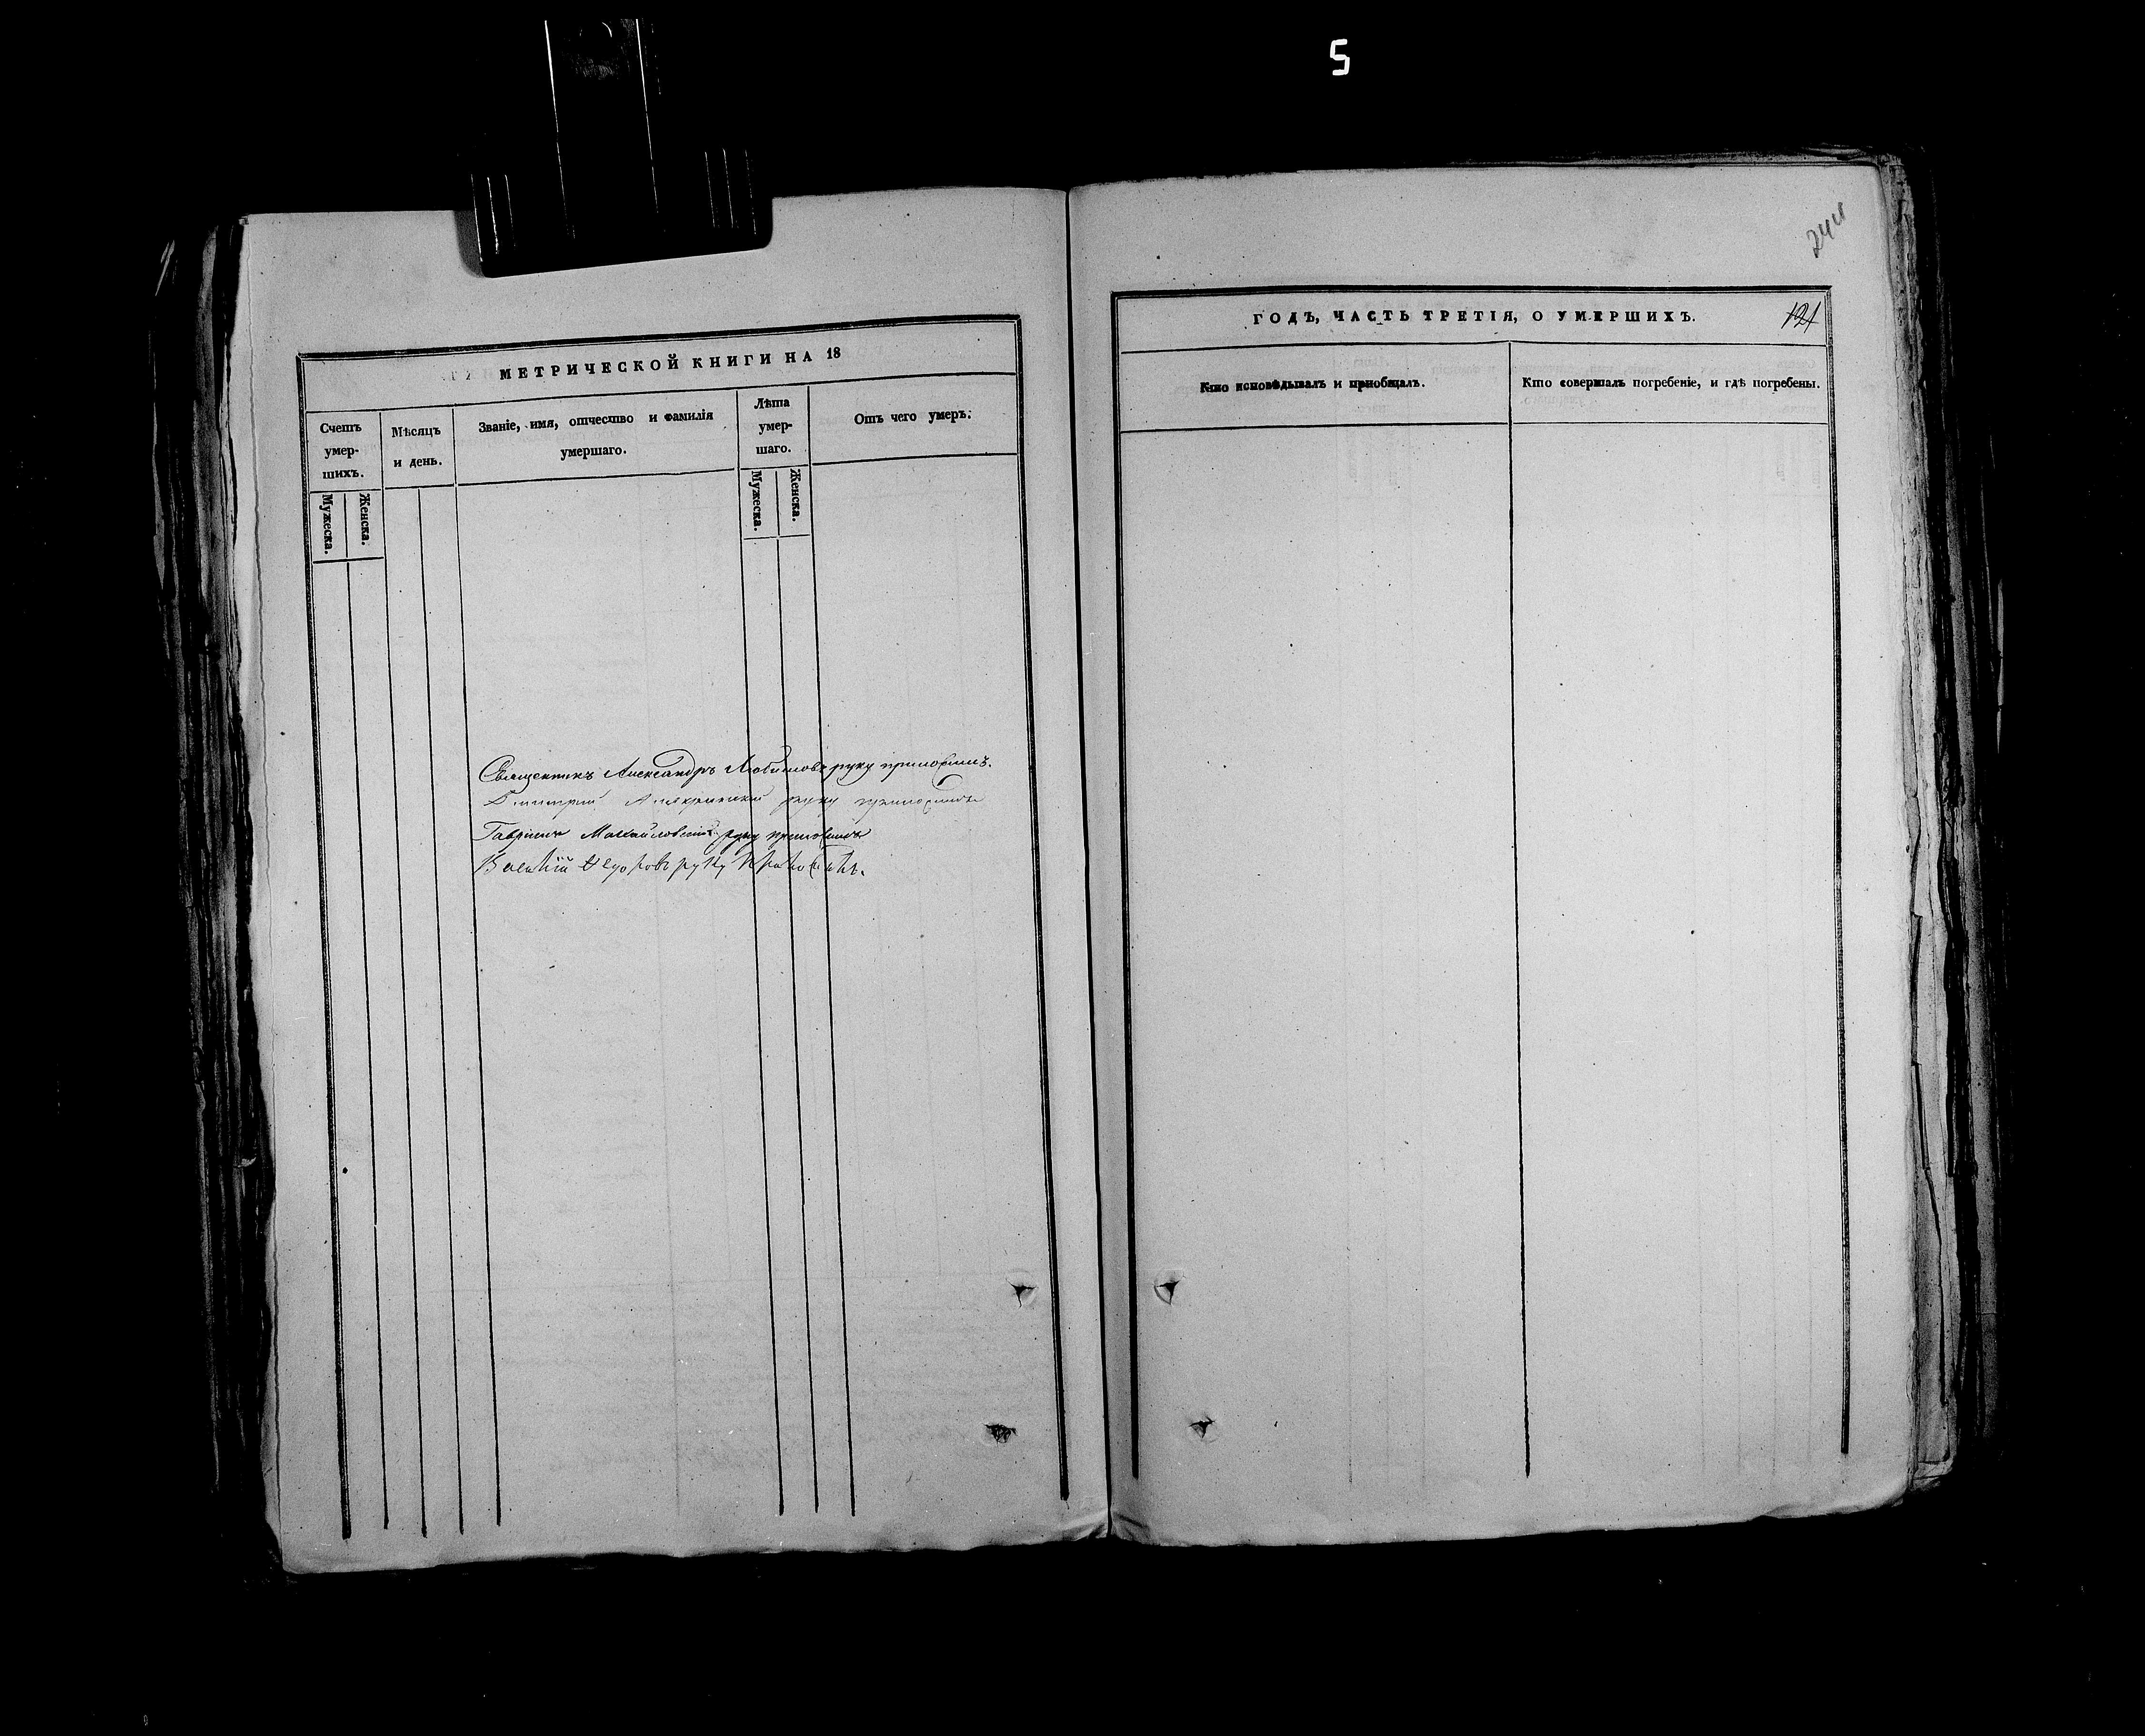 5
МЕТРИЧЕСКОЙ КНИГИ НА 18
Счетъ умер-шихъ.
Мужеска.
Женска.
Мѣсяцъ и день.
Званіе, имя, отчество и фамилія умершаго.
Лѣта умер-шаго.
Мужеска.
Женска.
Отъ чего умеръ.
Священникъ Александръ Любимовъ руку приложилъ.
Дмитрій руку приложилъ
Гавріилъ Михайловскій руку приложилъ
Василій Ѳедоровъ руку приложилъ.
244
ГОДЪ, ЧАСТЬ ТРЕТІЯ, О УМЕРШИХЪ.
121
Кто исповѣдывалъ и пріобщалъ.
Кто совершалъ погребеніе, и гдѣ погребены.